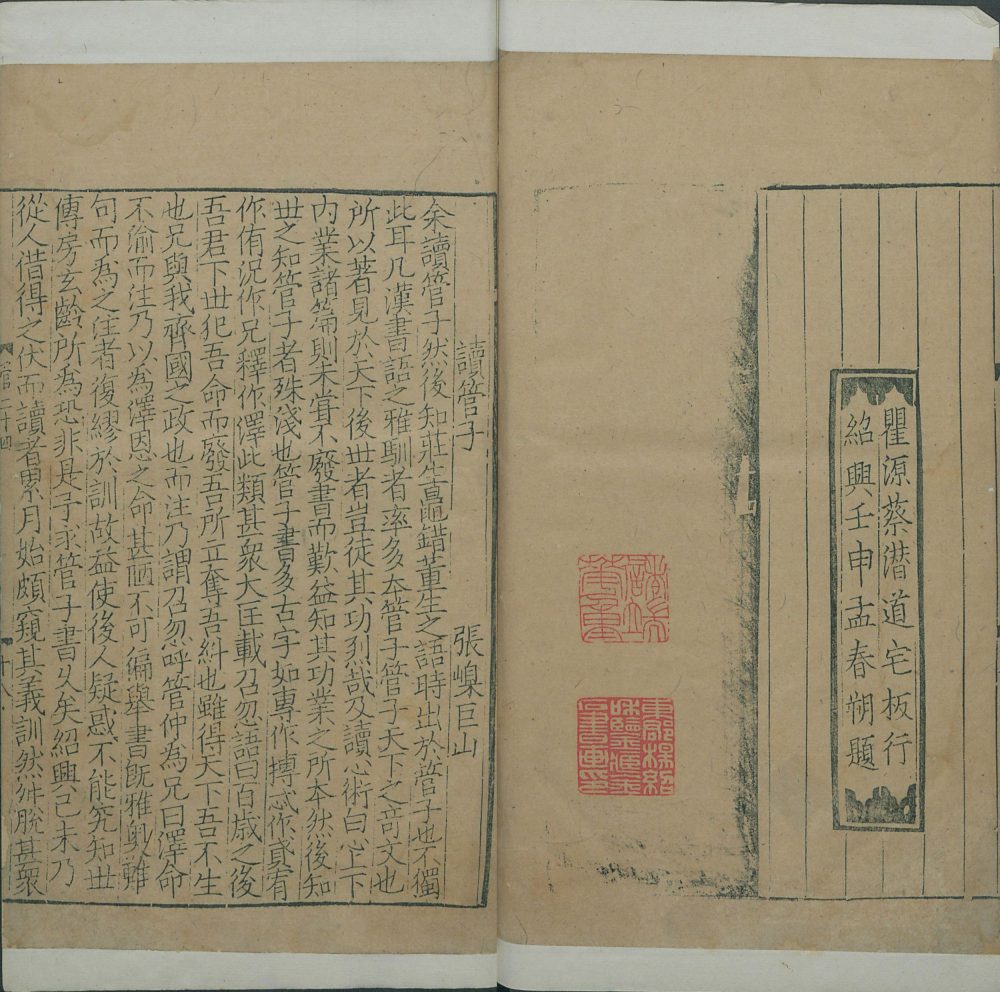 瞿源蔡潛道宅板行
紹興壬申孟春朔題
東郡楊紹
和鑒藏金
石書畫印
讀管子
張嵲巨山
余讀管子然後知莊生鼂錯董生之語時出於管子也不獨
此耳凡漢書語之雅馴者率多本管子管子天下之奇文也
所以著見於天下後世者豈徒其功烈哉及讀心術白心上下
內業諸篇則未嘗不廢書而歎益知其功業之所本然後知
世之知管子者殊淺也管子書多古字如專作摶忒作貣宥
作侑況作兄釋作澤此類甚衆大匡載召忽語曰百歲之後
吾君下世犯吾命而廢吾所立奪吾糾也雖得天下吾不生
也兄與我齊國之政也而注乃謂召忽呼管仲為兄曰澤命
不渝而注乃以為澤恩之命甚陋不可徧舉書旣雅奧難
句而為之注者復繆於訓故益使後人疑惑不能究知世
傳房玄齡所為恐非是予求管子書久矣紹興己未乃
從人借得之伏而讀者累月始頗窺其義訓然舛脫甚衆
管二十四